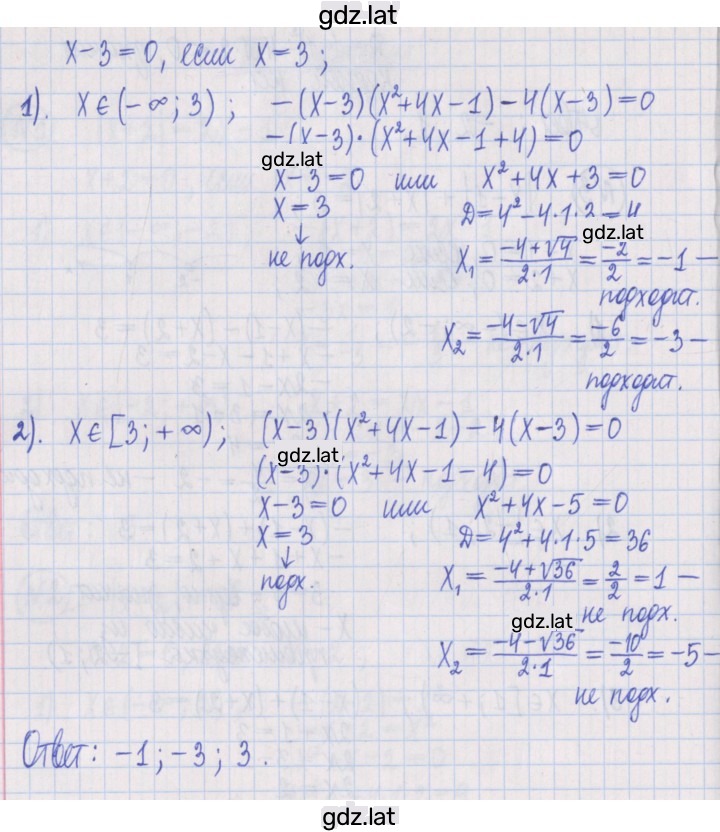 gdz.lat
x-3=0, если x=3;
1). x∈(-∞; 3); -(x-3)(x²+4x-1)-4(x-3)=0
-(x-3)·(x²+4x-1+4)=0
gdz.lat
x-3=0 или x²+4x+3=0
x=3 D=4²-4·1·3=4
gdz.lat
↓
не подх. x₁=(-4+√4)/(2·1)=(-2)/2=-1 -
подходит.
x₂=(-4-√4)/(2·1)=(-6)/2=-3 -
подходит.
2). x∈[3;+∞); (x-3)(x²+4x-1)-4(x-3)=0
gdz.lat
(x-3)·(x²+4x-1-4)=0
x-3=0 или x²+4x-5=0
x=3 D=4²+4·1·5=36
↓
подх. x₁=(-4+√36)/(2·1)=2/2=1 -
не подх.
gdz.lat
x₂=(-4-√36)/(2·1)=(-10)/2=-5 -
не подх.
Ответ: -1; -3; 3.
gdz.lat